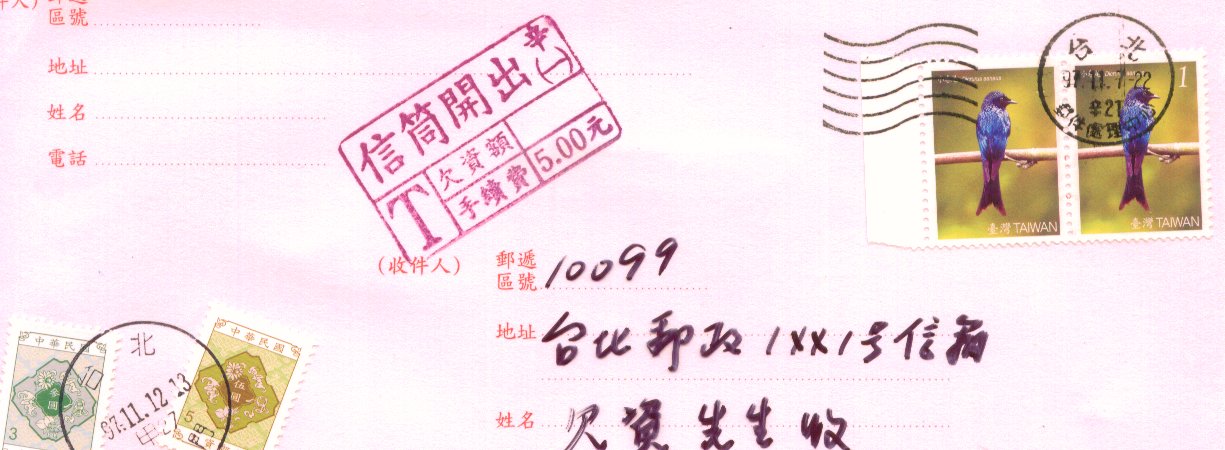 件人)
區號
地址
姓名
電話
信筒開出
辛
(一)
T
欠資額
手續費
5.00元
台北
97.11.7-22
辛21
處理
1
臺灣 TAIWAN
臺灣 TAIWAN
(收件人)
郵遞
區號 10099
地址 台北郵政1XX1号信箱
姓名 欠資先生收
中華民國
3
中華民國
伍圓
5
台北
97.11.12.13
甲27